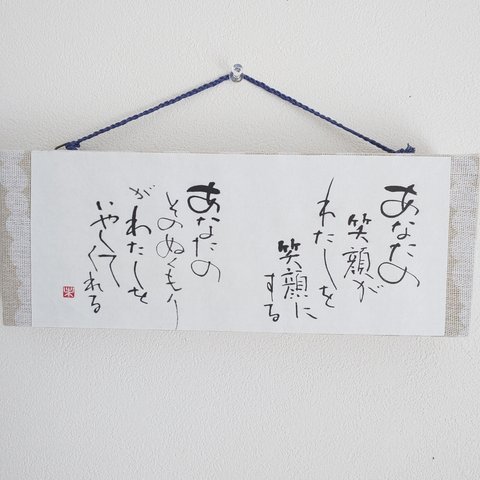 あなたの
笑顔が
わたしを
笑顔に
する
あなたの
そのぬくもり
がわたしを
いやしてくれる